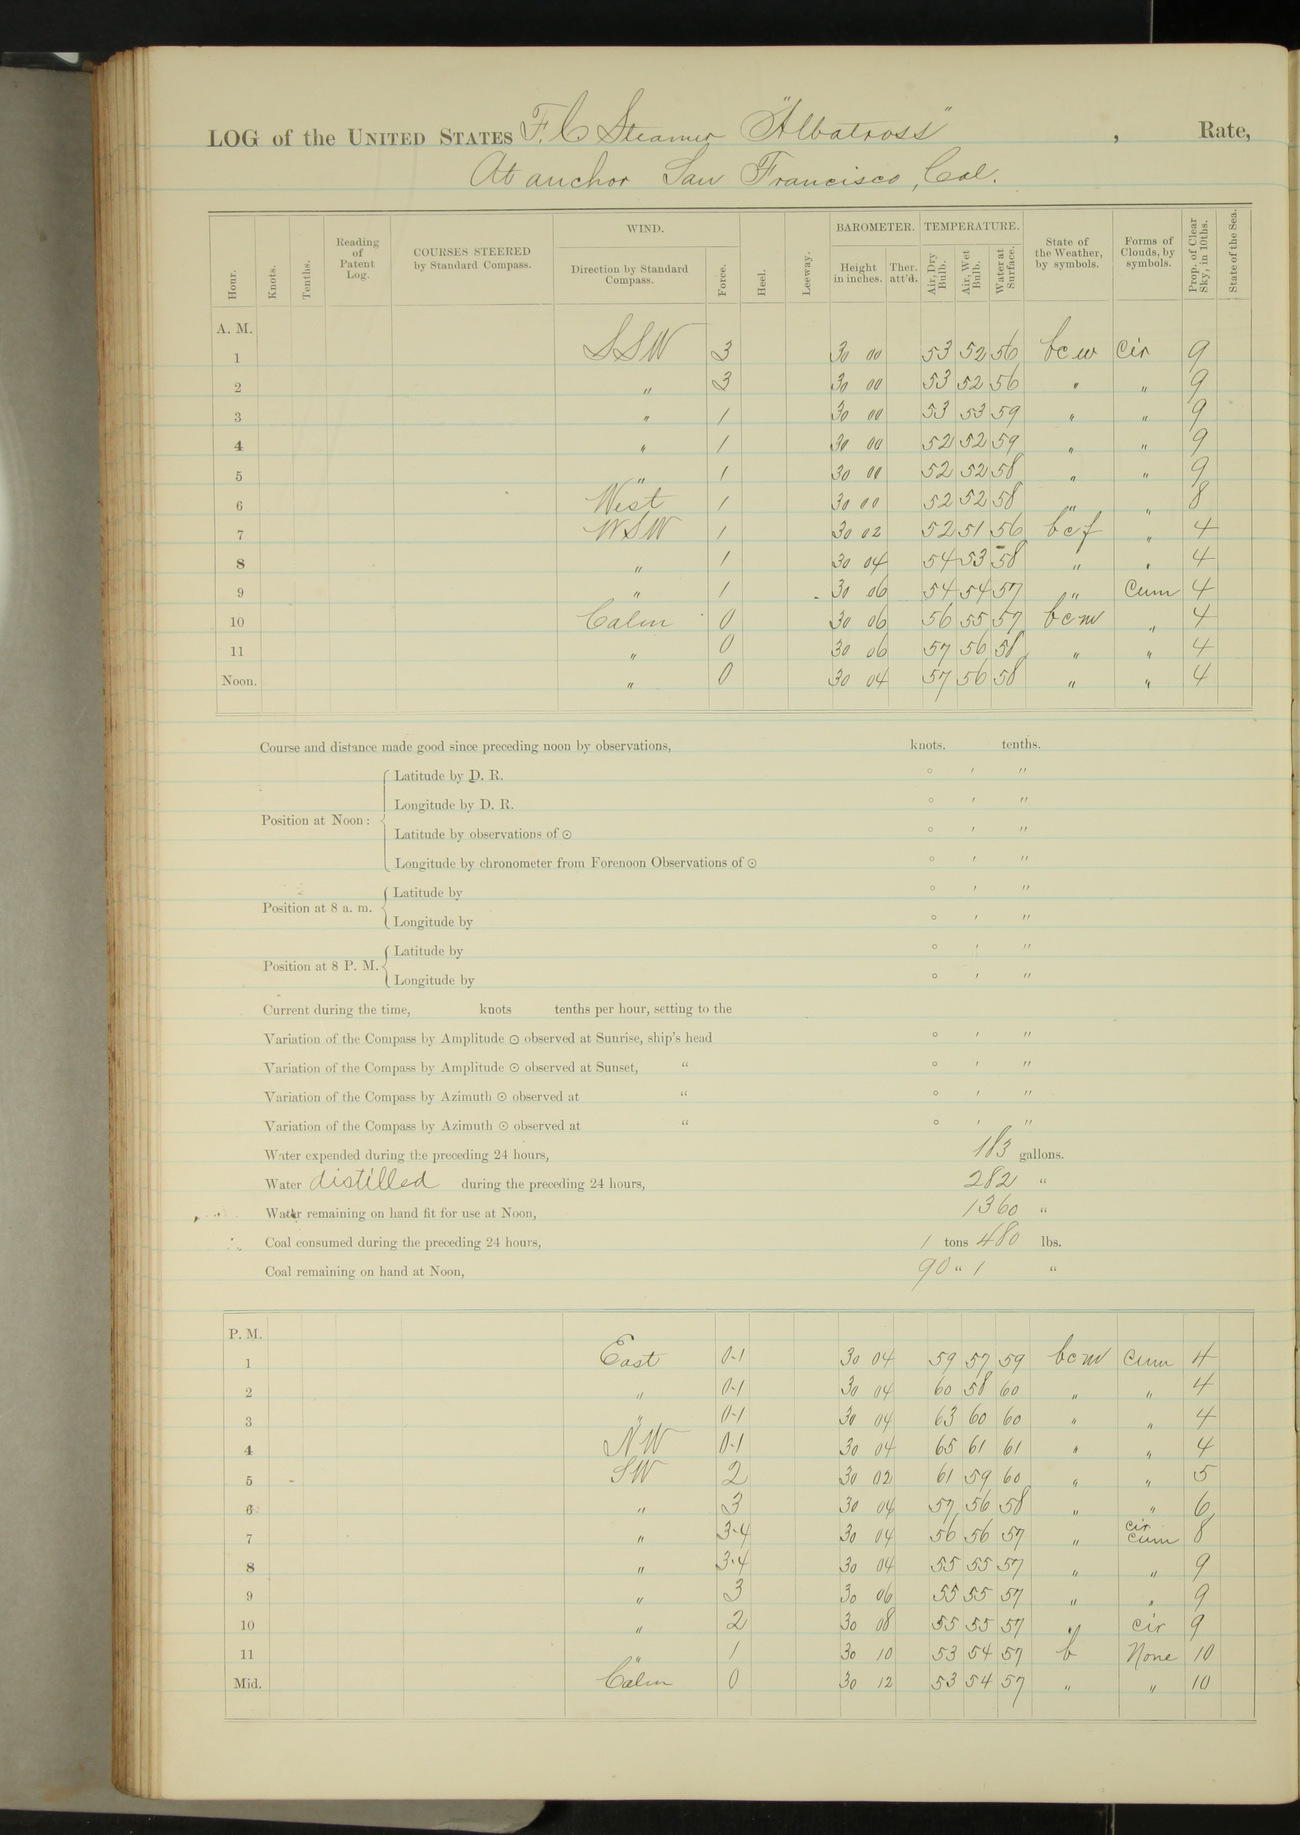 LOG of the UNITED STATES F. C Steamer "Albatross", Rate,
At anchor San Francisco, Cal.
Hour. Knots. Tenths. Reading of Patent Log. COURSES STEERED by Standard Compass. WIND. Direction by Standard Compass. Force. Heel. Leeway. BAROMETER. Height in inches. Ther. att'd. TEMPERATURE. Air, Dry Bulb. Air, Wet Bulb. Water at Surface. State of the Weather, by symbols. Forms of Clouds, by symbols. Prop. of Clear Sky, in 10ths. State of the Sea.
A. M.
1 SSW 3 30 00 53 52 56 bcw Cir 9
2 " 3 30 00 53 52 56 " " 9
3 " 1 30 00 53 53 59 " " 9
4 " 1 30 00 52 52 59 " " 9
5 " 1 30 00 52 52 58 " " 9
6 West 1 30 00 52 52 58 " " 8
7 WSW 1 30 02 52 51 56 bcf " 4
8 " 1 30 04 54 53 58 " " 4
9 " 1 30 06 54 54 57 " Cum 4
10 Calm 0 30 06 56 55 57 bcm " 4
11 " 0 30 06 57 56 58 " " 4
Noon. " 0 30 04 57 56 58 " " 4
Course and distance made good since preceding noon by observations, knots. tenths.
Position at Noon:
Latitude by D. R. ° ′ ″
Longitude by D. R. ° ′ ″
Latitude by observations of ⊙ ° ′ ″
Longitude by chronometer from Forenoon Observations of ⊙ ° ′ ″
Position at 8 a. m.
Latitude by ° ′ ″
Longitude by ° ′ ″
Position at 8 P. M.
Latitude by ° ′ ″
Longitude by ° ′ ″
Current during the time, knots tenths per hour, setting to the
Variation of the Compass by Amplitude ⊙ observed at Sunrise, ship's head ° ′ ″
Variation of the Compass by Amplitude ⊙ observed at Sunset, " ° ′ ″
Variation of the Compass by Azimuth ⊙ observed at " ° ′ ″
Variation of the Compass by Azimuth ⊙ observed at " ° ′ ″
Water expended during the preceding 24 hours, 183 gallons.
Water distilled during the preceding 24 hours, 282 "
Water remaining on hand fit for use at Noon, 1360 "
Coal consumed during the preceding 24 hours, 1 tons 480 lbs.
Coal remaining on hand at Noon, 90 " 1 "
P. M.
1 East 0-1 30 04 59 57 59 bcm Cum 4
2 " 0-1 30 04 60 58 60 " " 4
3 " 0-1 30 04 63 60 60 " " 4
4 NW 0-1 30 04 65 61 61 " " 4
5 SW 2 30 02 61 59 60 " " 5
6 " 3 30 04 57 56 58 " " 6
7 " 3-4 30 04 56 56 57 " cir cum 8
8 " 3-4 30 04 55 55 57 " " 9
9 " 3 30 06 55 55 57 " " 9
10 " 2 30 08 55 55 57 " cir 9
11 " 1 30 10 53 54 57 b None 10
Mid. Calm 0 30 12 53 54 57 " " 10